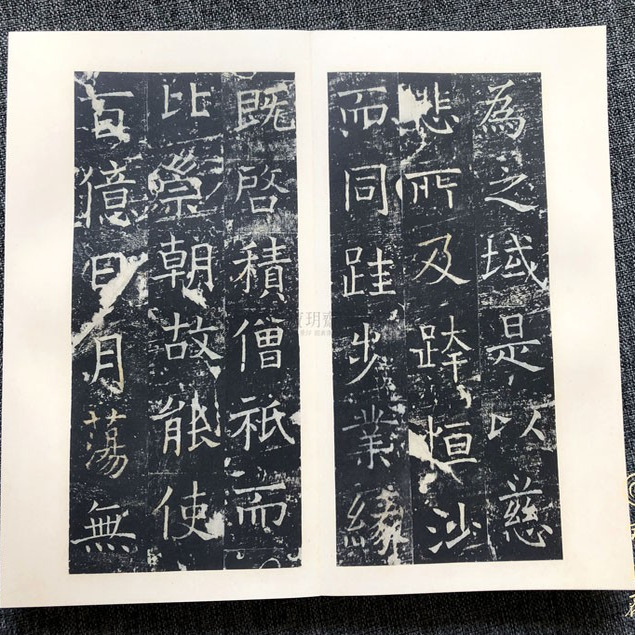 為之域是以慈
悲所及跨恒沙
而同跬步業緣
既啓積僧祇而
比崇朝故能使
百億日月蕩無
玥齋